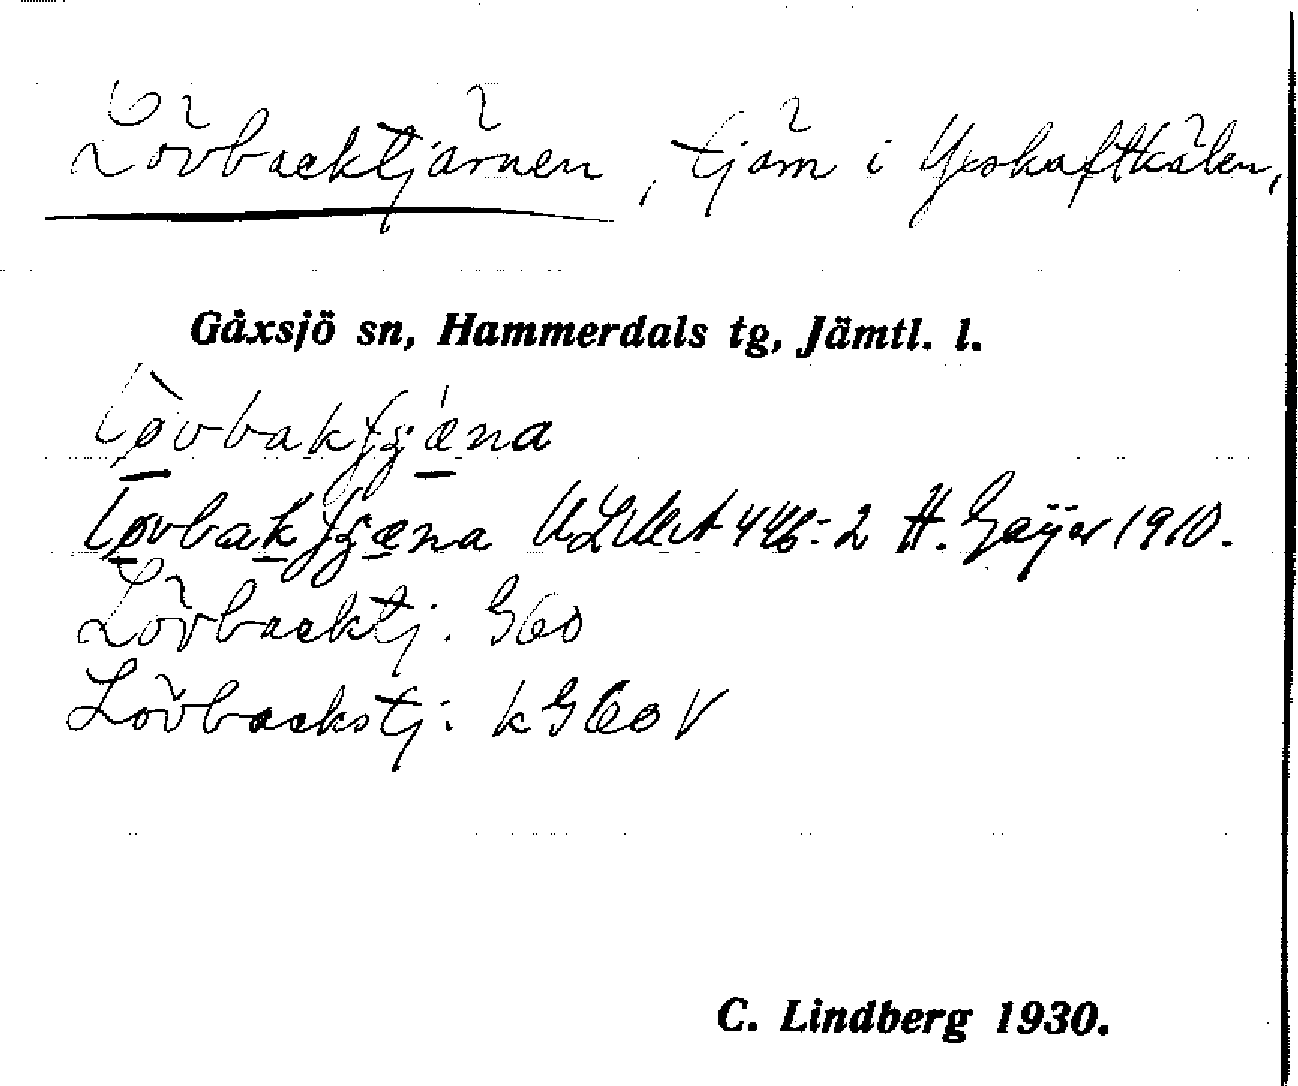 Lövbacktjärnen, tjärn i Yxskaftkälen,
Gåxsjö sn, Hammerdals tg, Jämtl. l.
Løvbakʃjæna
Løvbakʃjæna 446:2 H. Geijer 1910.
Lövbacktj. G60
Lövbackstj: kG60V
C. Lindberg 1930.